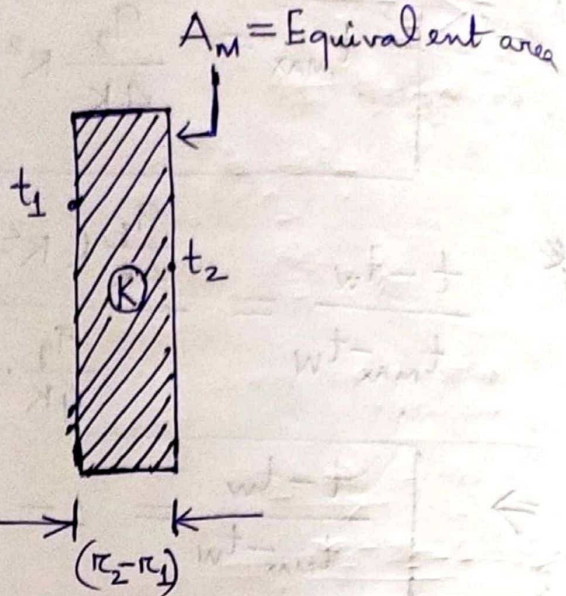 A_M = Equivalent area
t_1
t_2
K
(r_2-r_1)